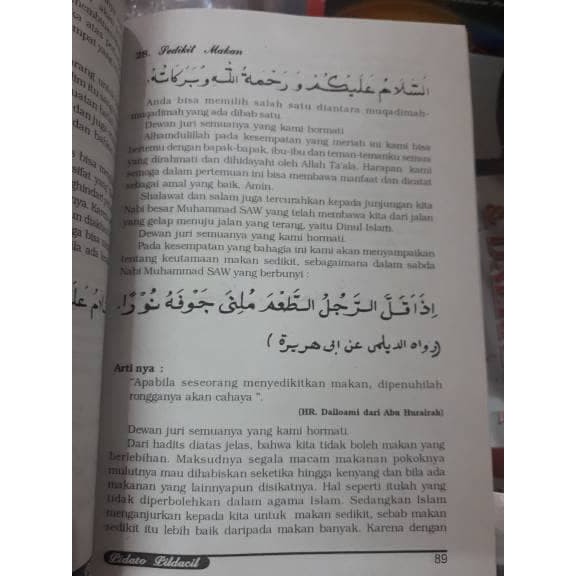 28. Sedikit Makan
السَّلَامُ عَلَيْكُمْ وَرَحْمَةُ اللّٰهِ وَبَرَكَاتُهُ.
Anda bisa memilih salah satu diantara muqadimah-
muqadimah yang ada dibab satu.
Dewan juri semuanya yang kami hormati
Alhamdulillah pada kesempatan yang meriah ini kami bisa
bertemu dengan bapak-bapak, ibu-ibu dan teman-temanku semua
yang dirahmati dan dihidayahi oleh Allah Ta'ala. Harapan kami
semoga dalam pertemuan ini bisa membawa manfaat dan dicatat
sebagai amal yang baik. Amin.
Shalawat dan salam juga tercurahkan kepada junjungan kita
Nabi besar Muhammad SAW yang telah membawa kita dari jalan
yang gelap menuju jalan yang terang, yaitu Dinul Islam.
Dewan juri semuanya yang kami hormati.
Pada kesempatan yang bahagia ini kami akan menyampaikan
tentang keutamaan makan sedikit, sebagaimana dalam sabda
Nabi Muhammad SAW yang berbunyi :
اِذَا قَلَّ الرَّجُلُ الطَّعْمَ مُلِئَ جَوْفُهُ نُوْرًا.
(رواه الديلمى عن ابى هريرة)
Arti nya :
"Apabila seseorang menyedikitkan makan, dipenuhilah
rongganya akan cahaya ".
(HR. Dailoami dari Abu Hurairah)
Dewan juri semuanya yang kami hormati
Dari hadits diatas jelas, bahwa kita tidak boleh makan yang
berlebihan. Maksudnya segala macam makanan pokoknya
mulutnya mau dihabiskan seketika hingga kenyang dan bila ada
makanan yang lainnyapun disikatnya. Hal seperti itulah yang
tidak diperbolehkan dalam agama Islam. Sedangkan Islam
menganjurkan kepada kita untuk makan sedikit, sebab makan
sedikit itu lebih baik daripada makan banyak. Karena dengan
Pidato Pildacil
89